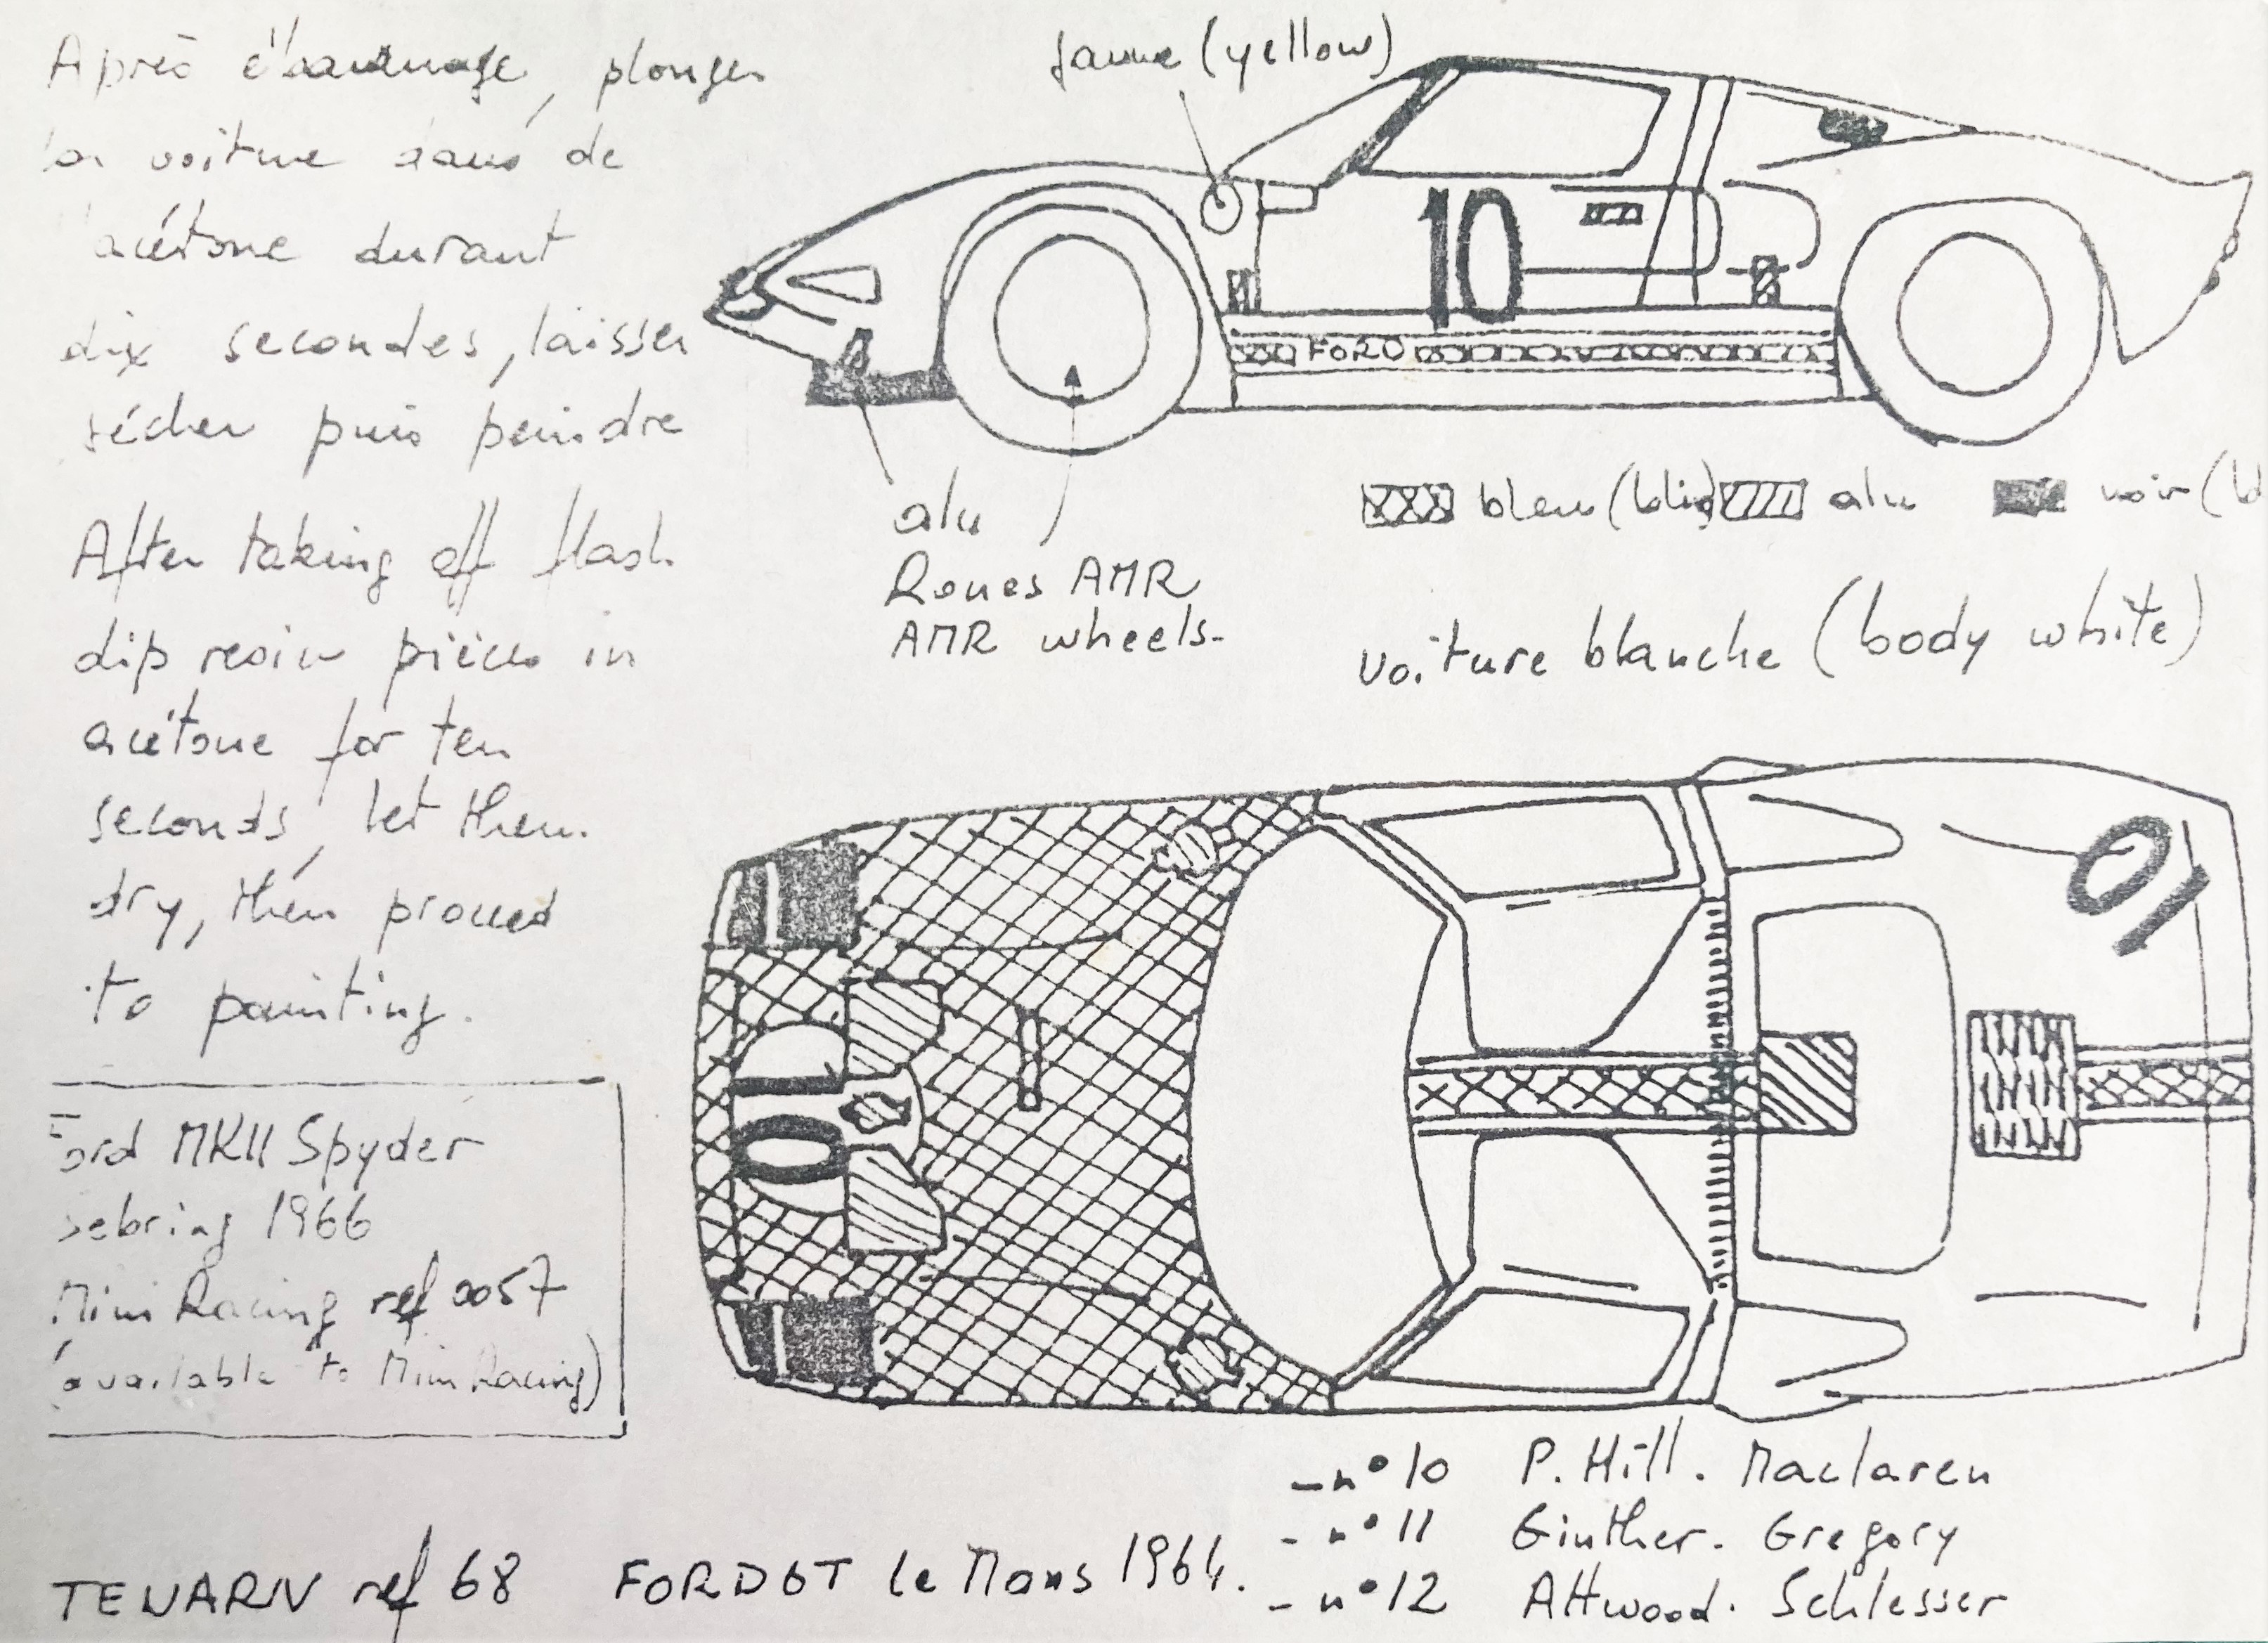 Après ébavurage, plonger
la voiture dans de
l'acétone durant
dix secondes, laisser
sécher puis peindre
After taking off flash
dip resin pièces in
acétone for ten
seconds, let them
dry, then proceed
to painting.
Ford MKII Spyder
Sebring 1966
Mini Racing ref 0057
(available to Mini Racing)
TENARIV ref 68 FORD GT le Mans 1964.
jaune (yellow)
10
FORD
alu
Roues AMR
AMR wheels-
bleu (blue) alu noir (b
voiture blanche (body white)
10
10
- n° 10 P. Hill. Maclaren
- n° 11 Ginther. Gregory
- n° 12 Attwood. Schlesser